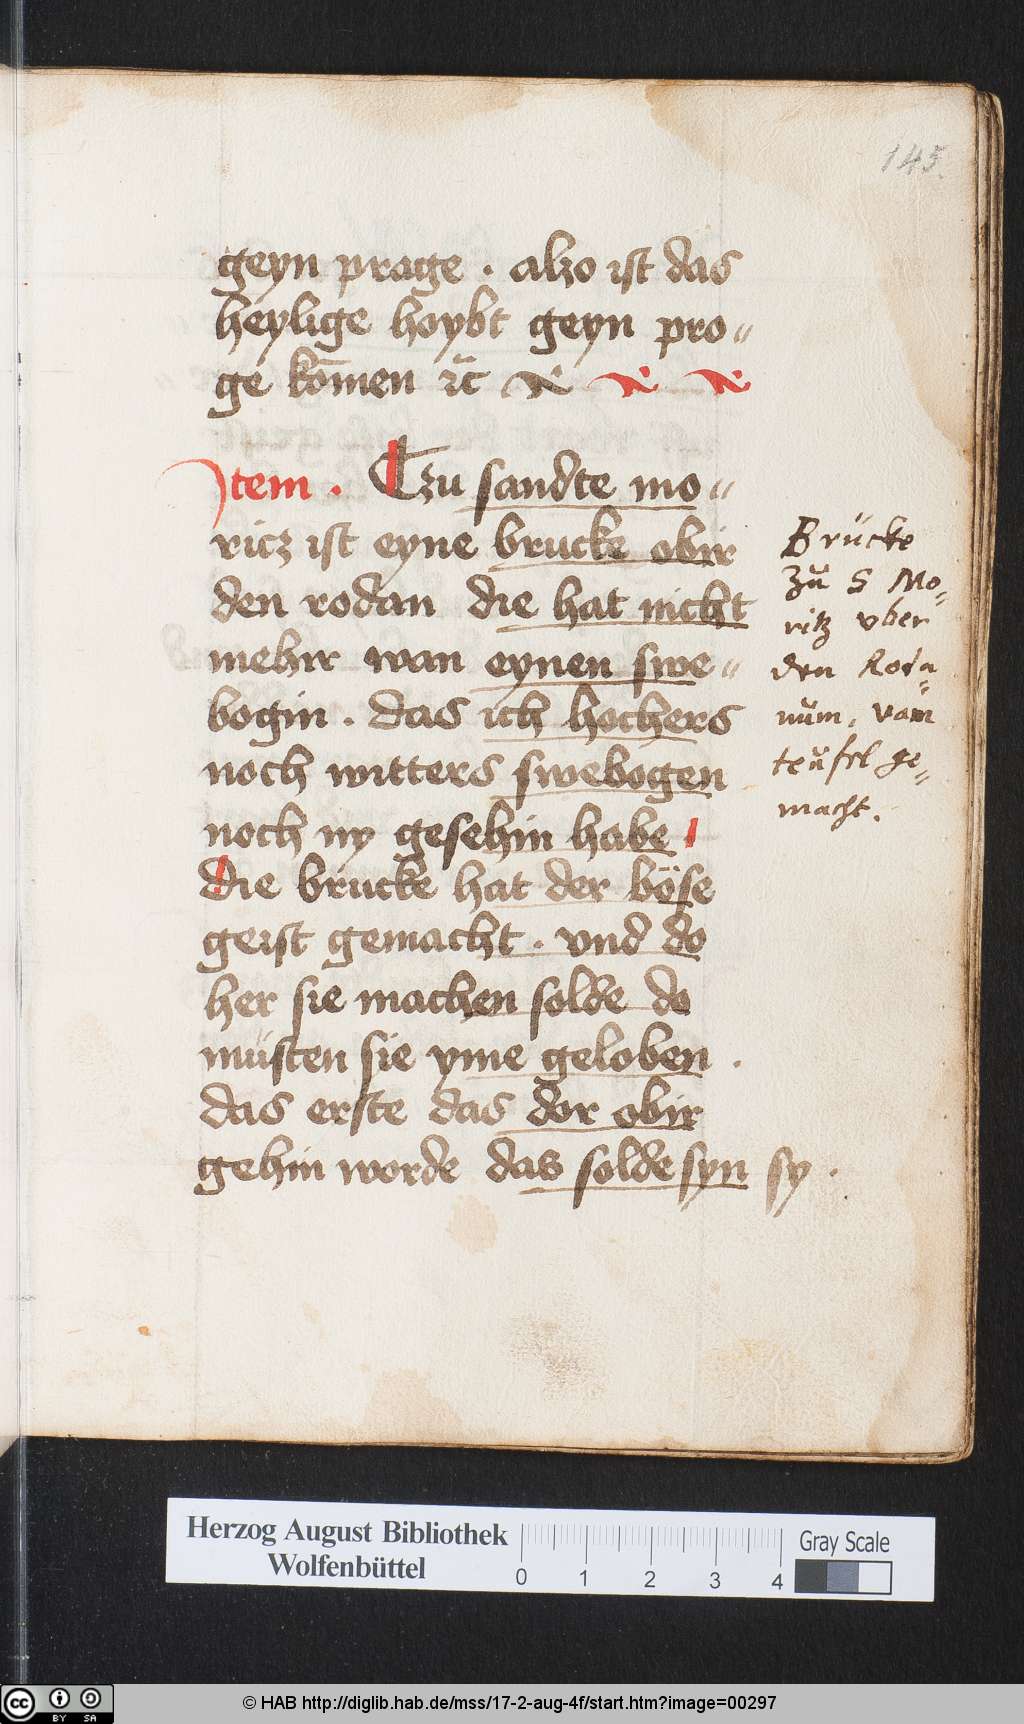 145.
geyn prage . alzo ist das
heylige hoybt geyn pro„
ge kōmen ꝛc̃
Item . Czu sandte mo„
ricz ist eyne brucke obir
den rodan die hat nicht
mehir wan eynen swe„
bogin . das ich hochers
noch witters swebogen
noch ny gesehin habe
die brucke hat der böse
geist gemacht . vnd do
her sie machen solde do
müsten sie yme geloben .
das erste das dor obir
gehin worde das solde syn sy .
Brücke
Zu S Mo„
ritz vber
den Roda„
num, vam
teufel ge„
macht.
Herzog August Bibliothek
Wolfenbüttel
0 1 2 3 4
Gray Scale
cc BY SA
© HAB http://diglib.hab.de/mss/17-2-aug-4f/start.htm?image=00297